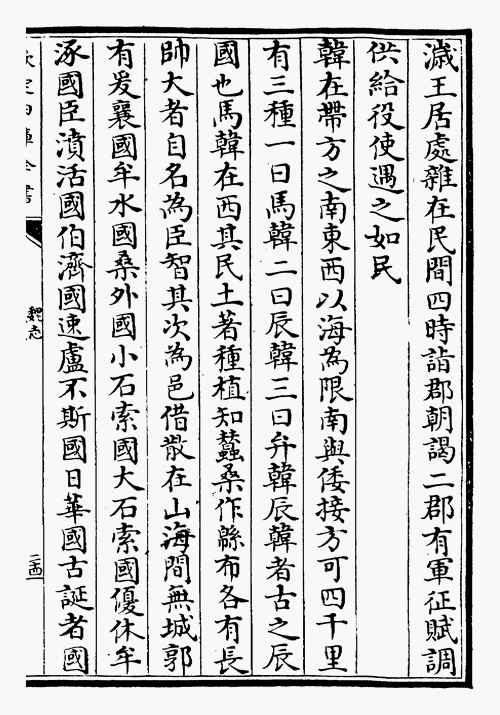 濊王居處雜在民間四時詣郡朝謁二郡有軍征賦調
供給役使遇之如民
韓在帶方之南東西以海為限南與倭接方可四千里
有三種一曰馬韓二曰辰韓三曰弁韓辰韓者古之辰
國也馬韓在西其民土著種植知蠶桑作緜布各有長
帥大者自名為臣智其次為邑借散在山海間無城郭
有爰襄國牟水國桑外國小石索國大石索國優休牟
涿國臣濆活國伯濟國速盧不斯國日華國古誕者國
魏志
二四